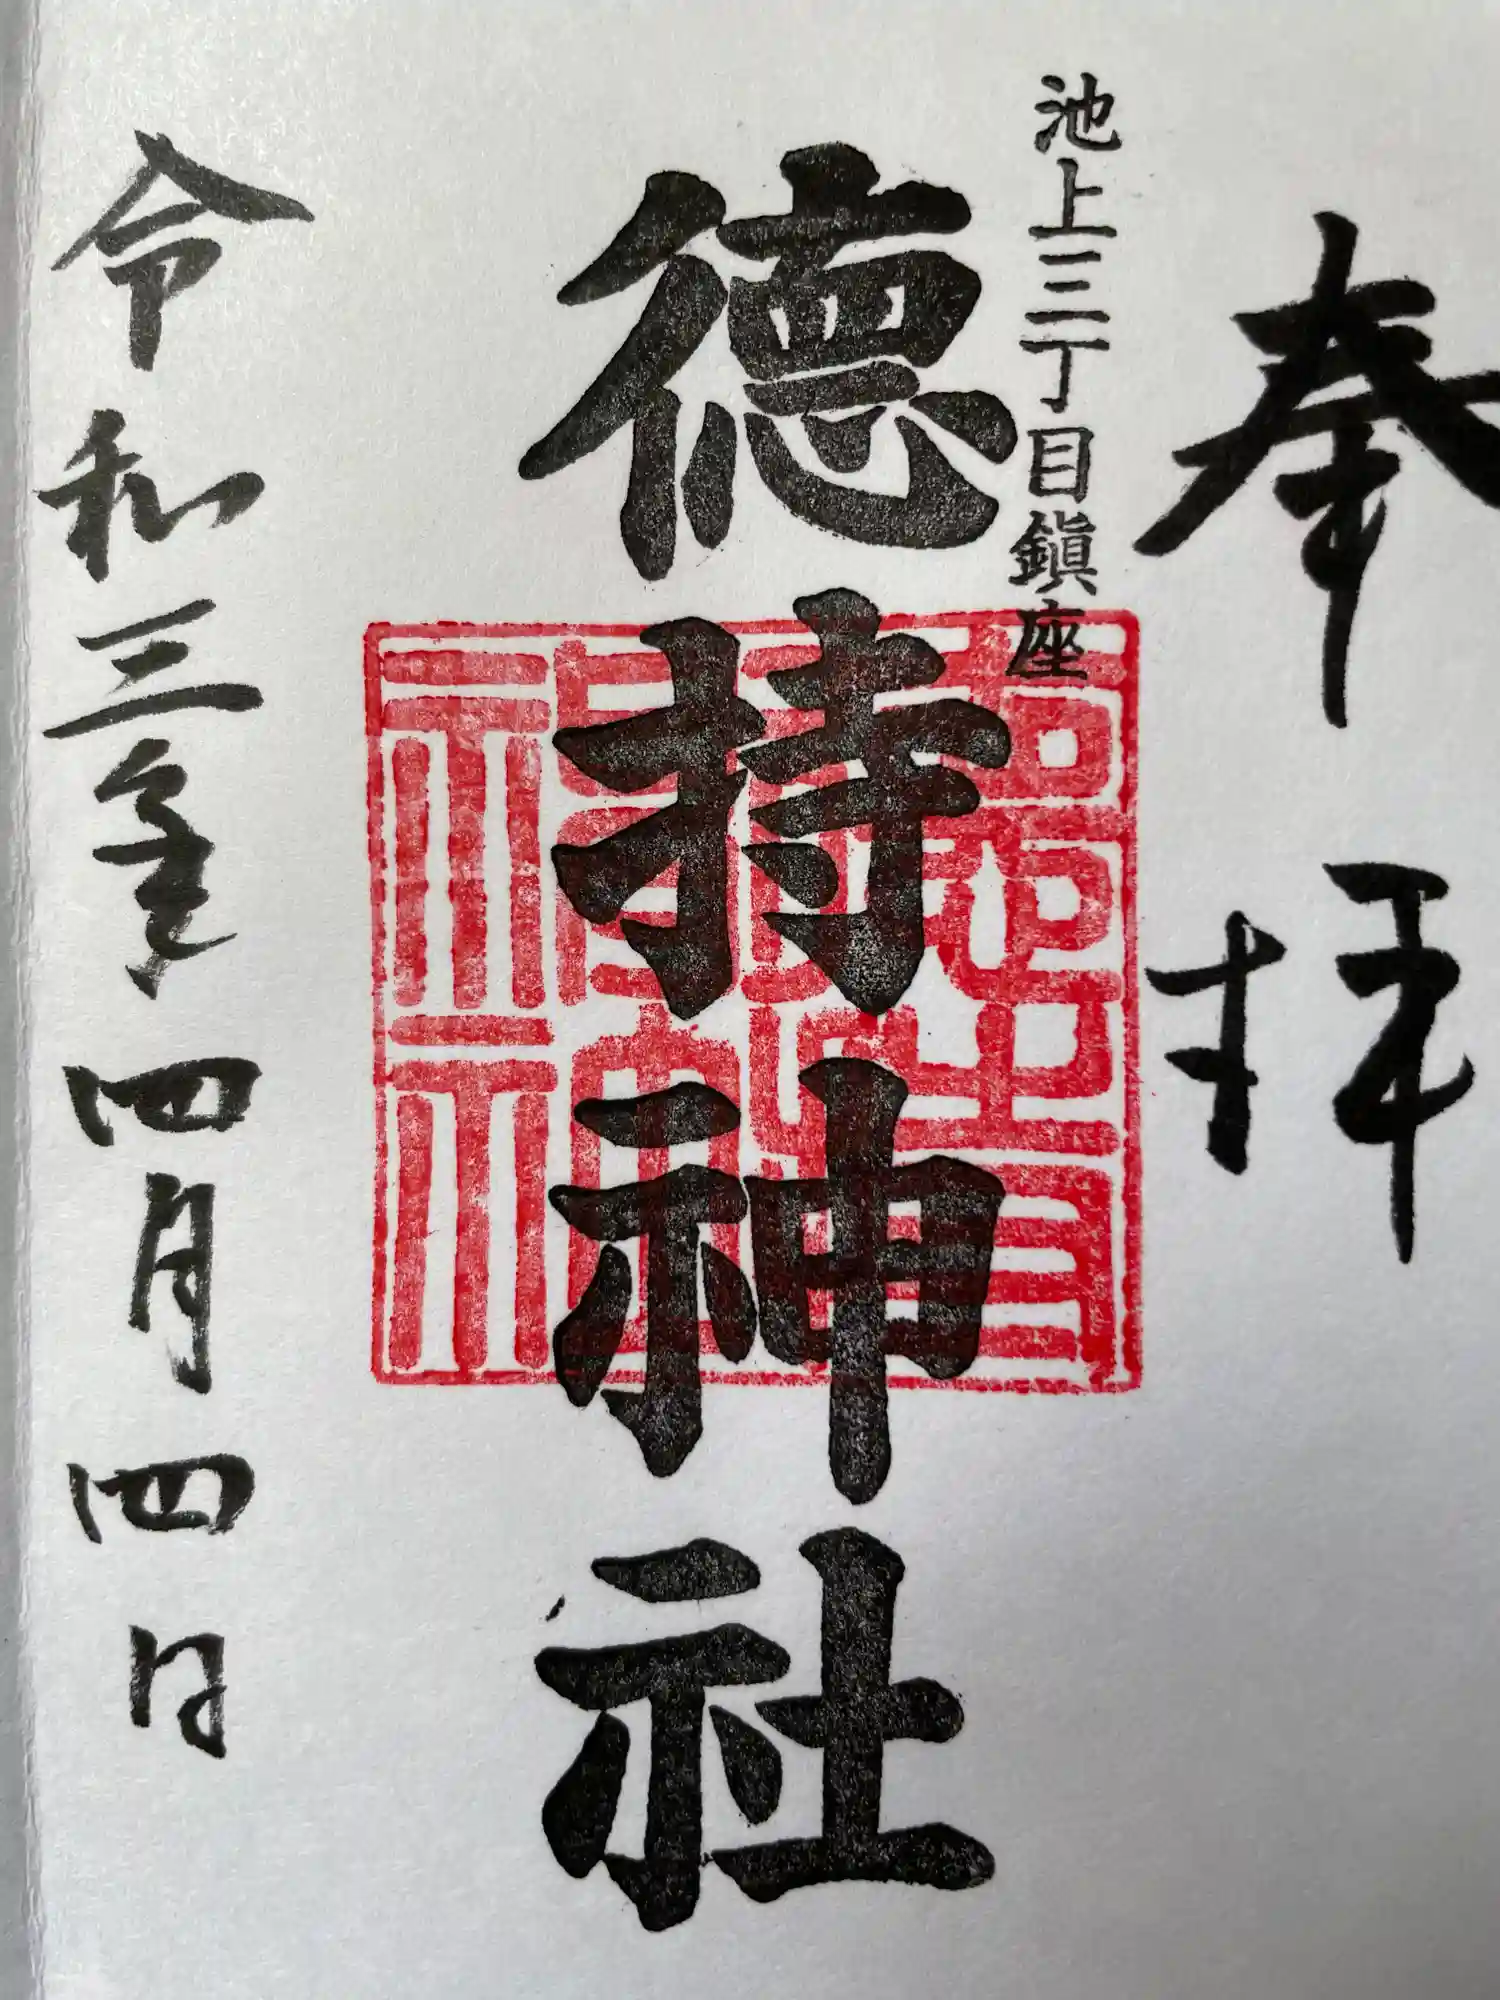 奉拝
池上三丁目鎭座
德持神社
令和三年四月四日